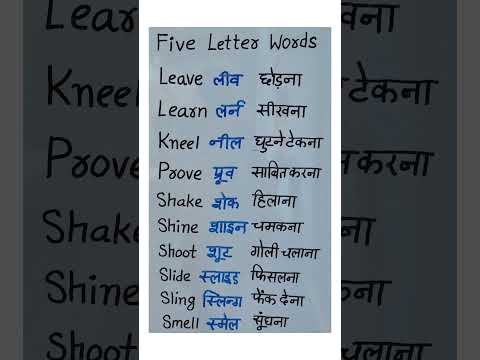 Five Letter Words
Leave लीव छोड़ना
Learn लर्न सीखना
Kneel नील घुटने टेकना
Prove प्रूव साबित करना
Shake शेक हिलाना
Shine शाइन चमकना
Shoot शूट गोली चलाना
Slide स्लाइड फिसलना
Sling स्लिन्ग फेंक देना
Smell स्मेल सूंघना